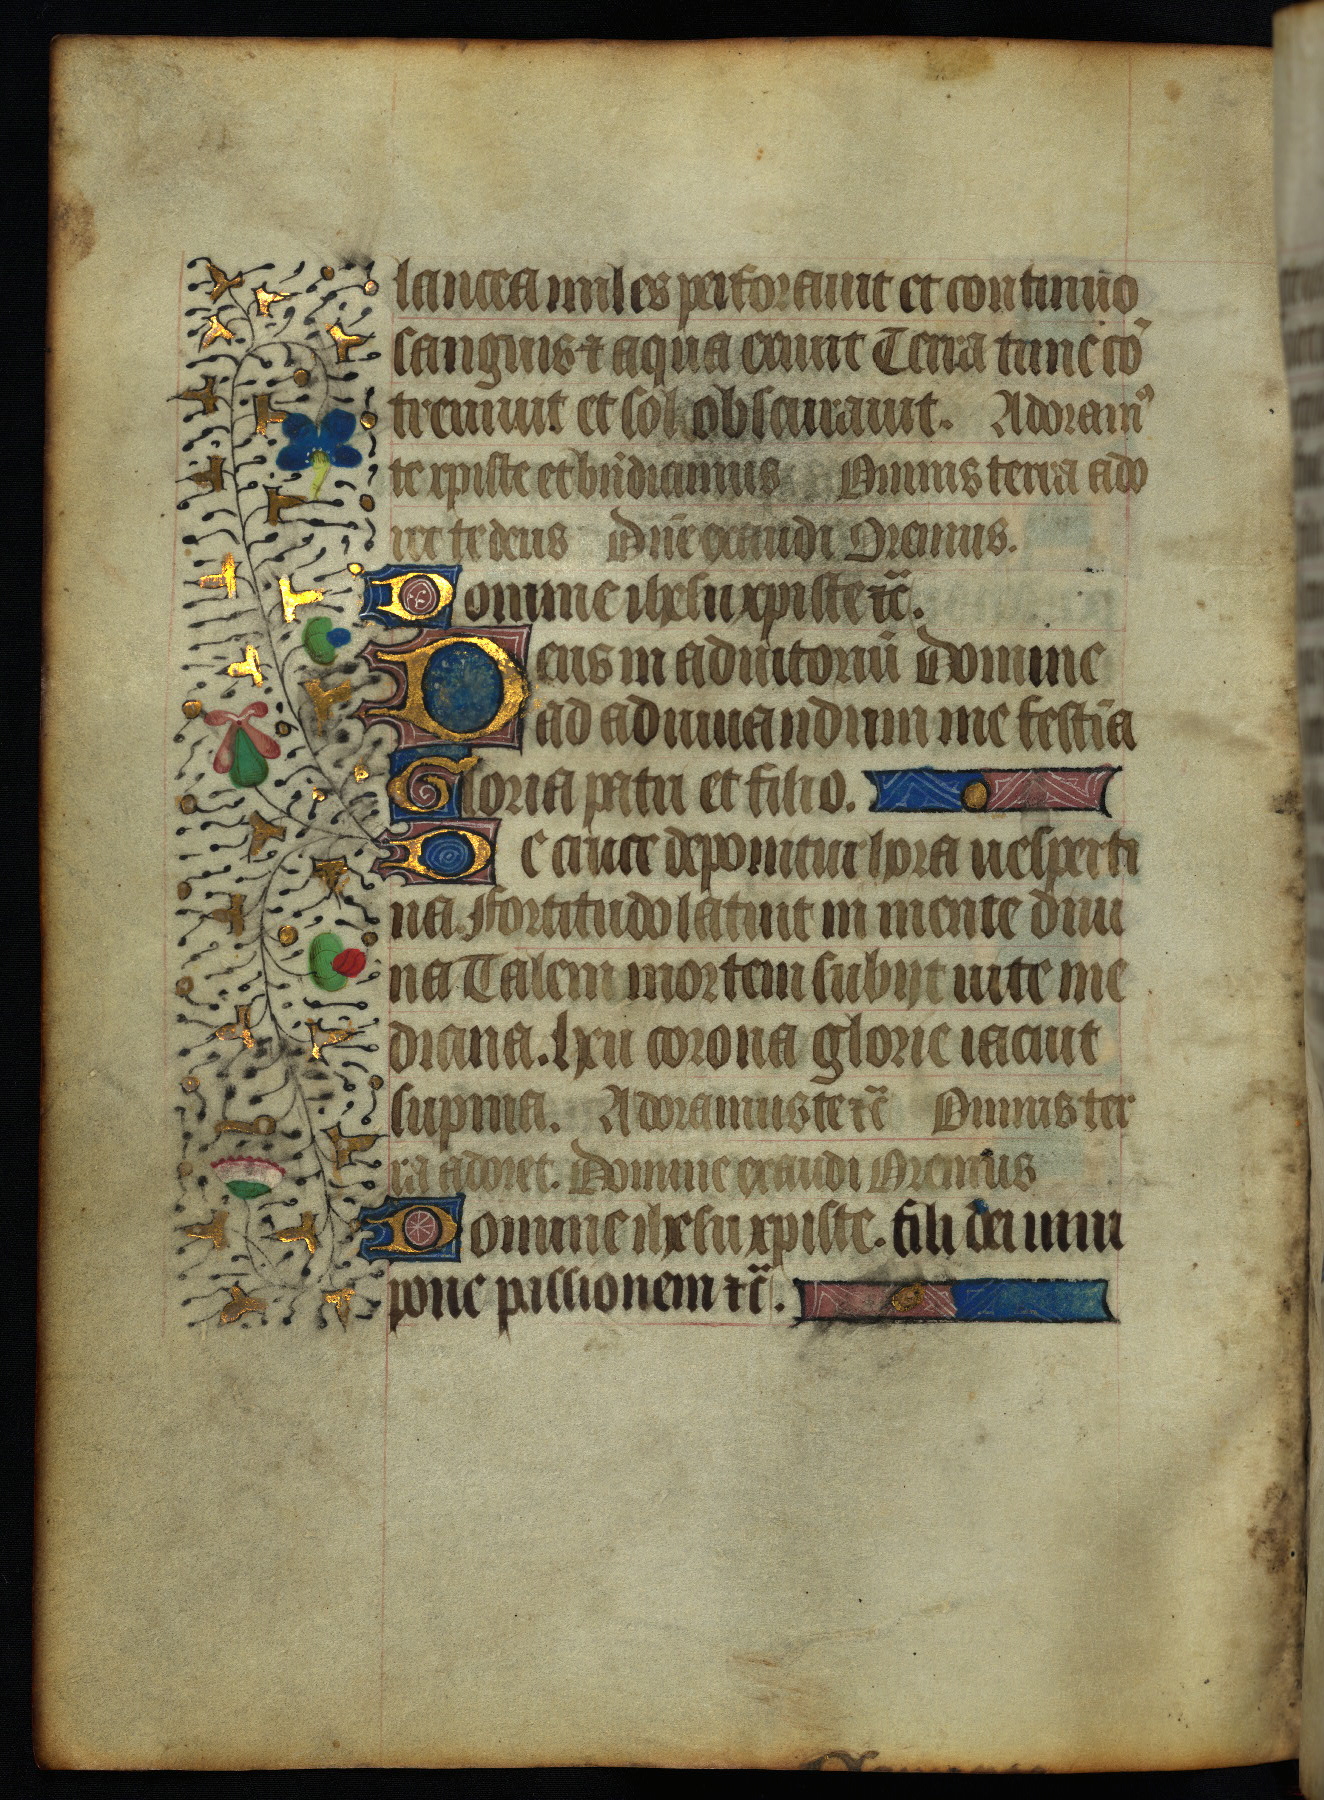 lancea miles perforauit et continuo
sanguis ⁊ aqua exiuit Terra tunc cō
tremuit et sol obscurauit. Adoramꝰ
te xpiste et bn̄dicimus Omnis terra ado
ret te deus Dn̄e exaudi Oremus.
Domine ihesu xpiste ⁊c̄.
Deus in adiutoriū Domine
ad adiuuandum me festīa
Gloria patri et filio.
De cruce deponitur hora uesperti
na. Fortitudo latuit in mente diui
na Talem mortem subijt uite me
dicina. heu corona glorie iacuit
supina. Adoramus te ⁊c̄ Omnis ter
ra adoret. Domine exaudi Oremus
Domine ihesu xpiste. fili dei uiui
pone passionem ⁊c̄.